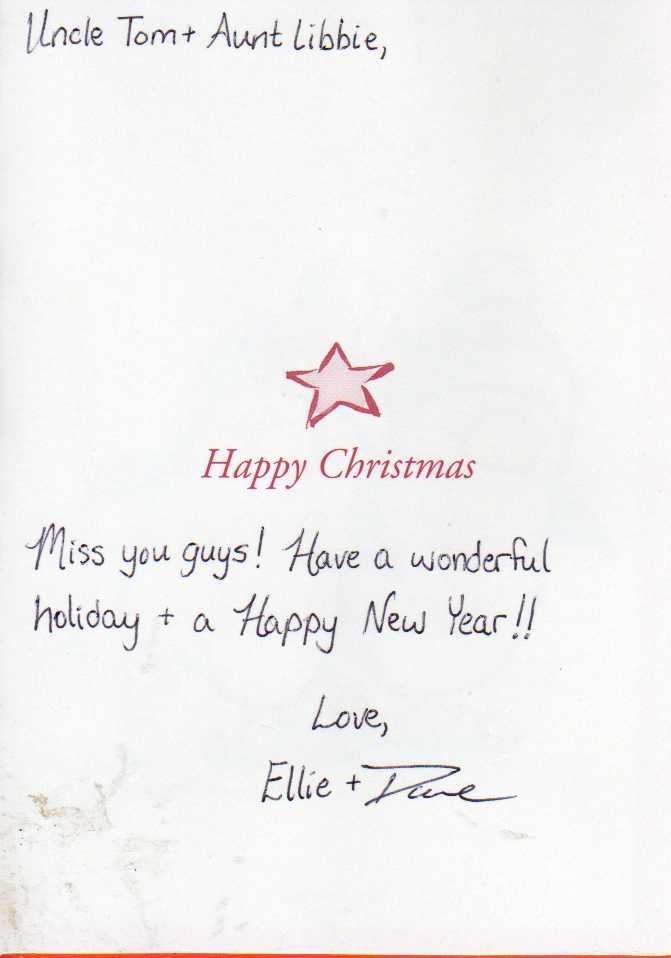 Uncle Tom + Aunt Libbie,
Happy Christmas
Miss you guys! Have a wonderful
holiday + a Happy New Year!!
Love,
Ellie + Dave